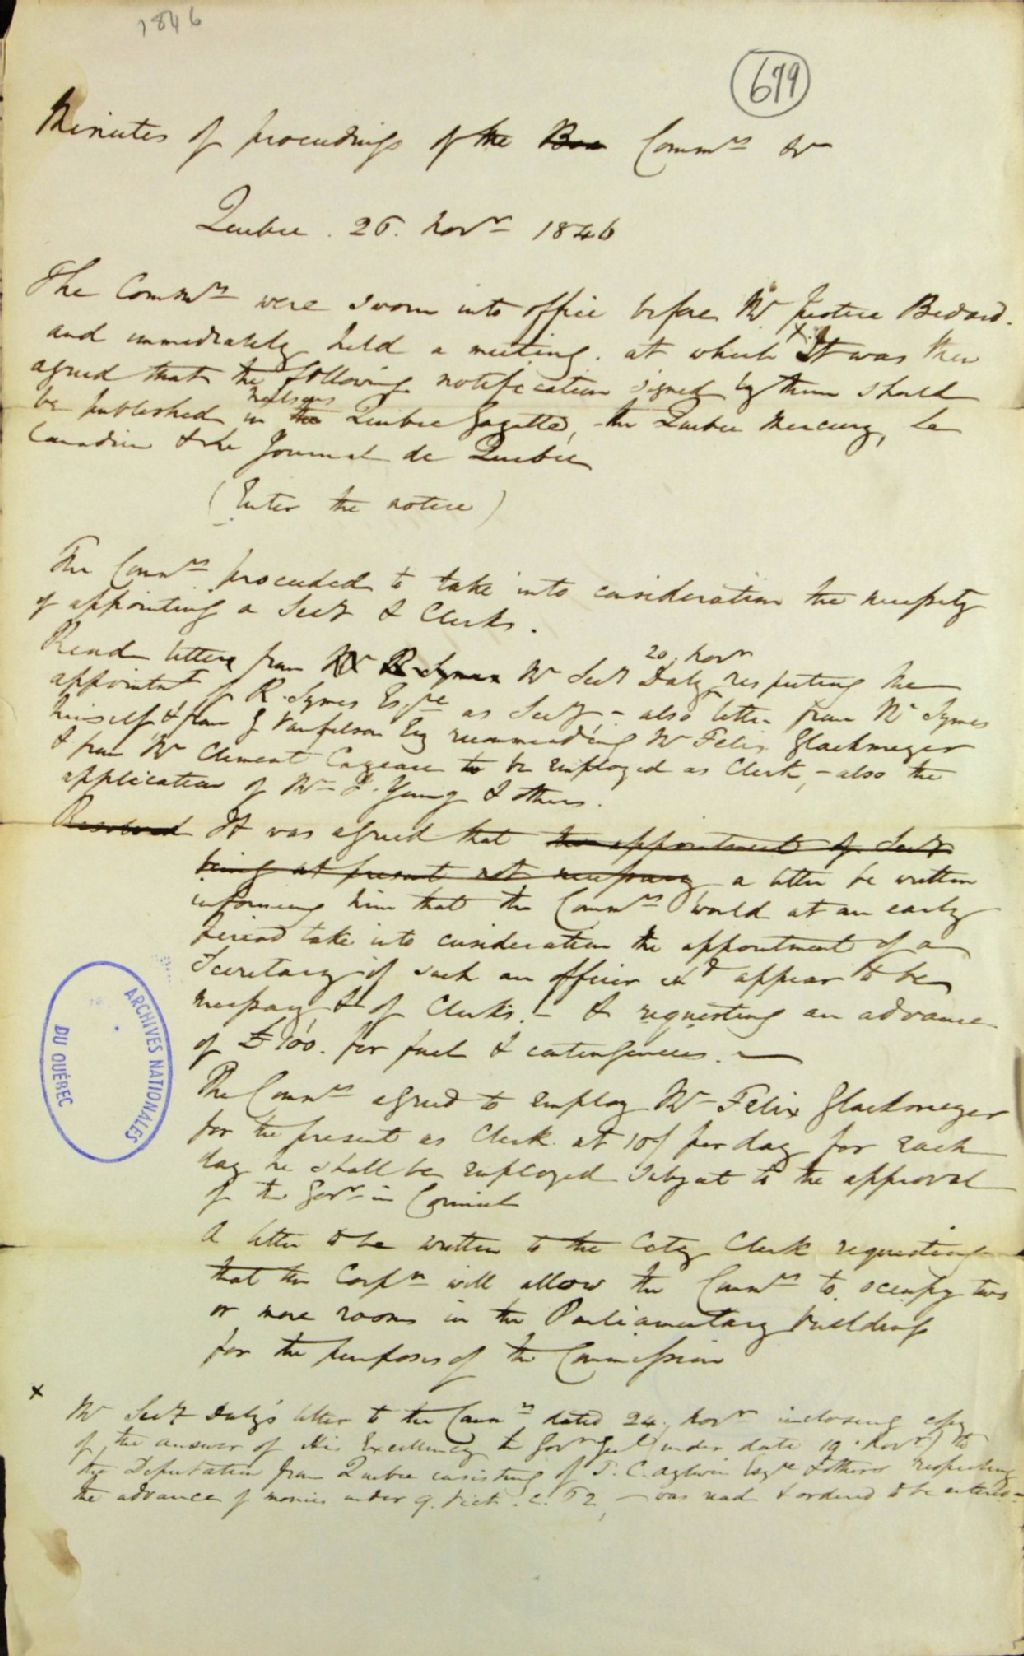 1846
679
Minutes of proceedings of the Boa Comm.rs &c
Quebec. 26. Novr 1846
The Commrs were sworn into office before Mr Justice Bedard.
and immediately held a meeting. at which x It was then
agreed that the following notification signed by them should
be published in the Neilsons Quebec Gazette, the Quebec Mercury, Le
Canadien & the Journal de Quebec
(Enter the notice)
The Commrs proceeded to take into consideration the necessity
of appointing a Secy & Clerks.
Read letters from Mr R. Symes Mr Secy Daly 20 Novr respecting the
appointt of R. Symes Esqre as Secy, - also letter from Mr Symes
himself & from G Vanfelson Esq recommending Mr Felix Glackmeyer
& from Mr Clement Cazeau to be employed as Clerk, - also the
application of Mr Young & others.
Resolved It was agreed that the appointment of Secy
being at present not necessary a letter be written
informing him that the Commrs would at an early
period take into consideration the appointment of a
Secretary if such an officer shd appear to be
necessary & of Clerks. - & requesting an advance
of £100. for fuel & contingencies.
The Commrs agreed to employ Mr Felix Glackmeyer
for the present as Clerk at 10/ per day for each
day he shall be employed subject to the approval
of the Govr in Council
A letter to be written to the City Clerk requesting
that the Corpn will allow the Commrs to occupy two
or more rooms in the Parliamentary buildings
for the purposes of the Commission
ARCHIVES NATIONALES
DU QUÉBEC
x
Mr Secy Daly's letter to the Commrs dated 24. Novr inclosing copy
of the answer of His Excellency the Govr Genl (under date 19. Novr) to
the Deputation from Quebec consisting of T. C. Aylwin Esqre & others respecting
the advance of monies under 9. Vict. c. 62, - was read & ordered to be entered -